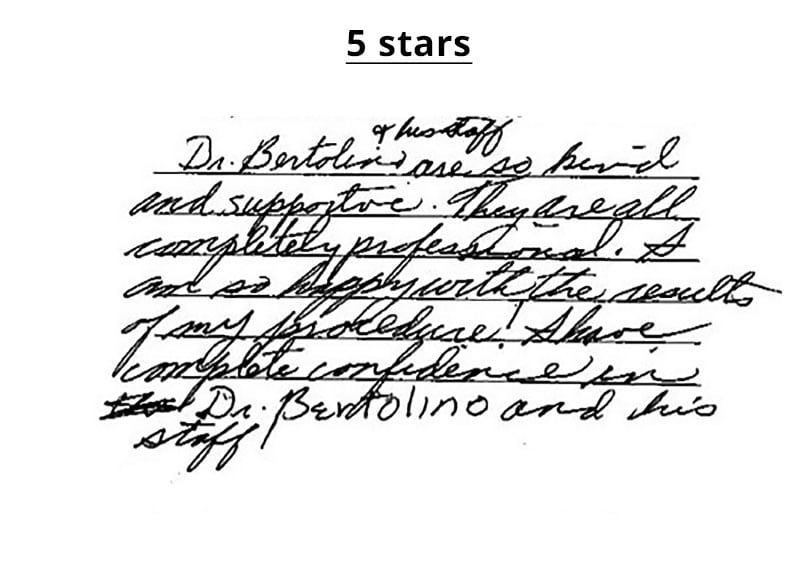 5 stars
& his staff
Dr. Bertolino are so kind
and supportive. They are all
completely professional. I
am so happy with the results
of my procedure! I have
complete confidence in
Dr. Bertolino and his
staff